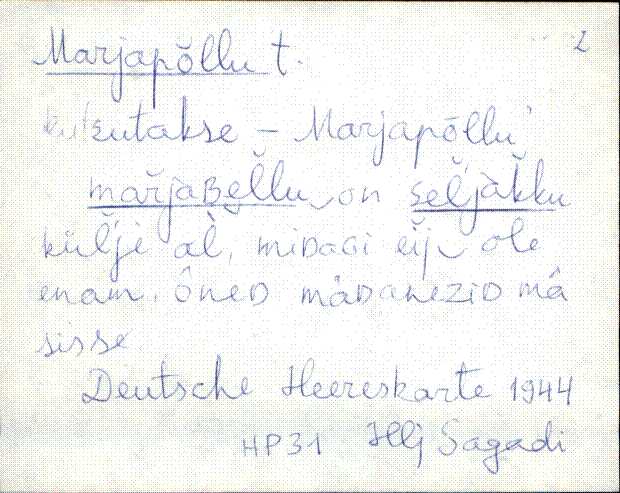 2
Marjapõllu t.
kutsutakse – Marjapõllu
mařjaʙe̮l̆lu on sel̆jàk̆ku
kül̆je al̀, miᴅaɢi ei̯j ole
enam. ôneᴅ mäᴅanezid mâ
sisse
Deutsche Heereskarte 1944
HP31 Hlj Sagadi